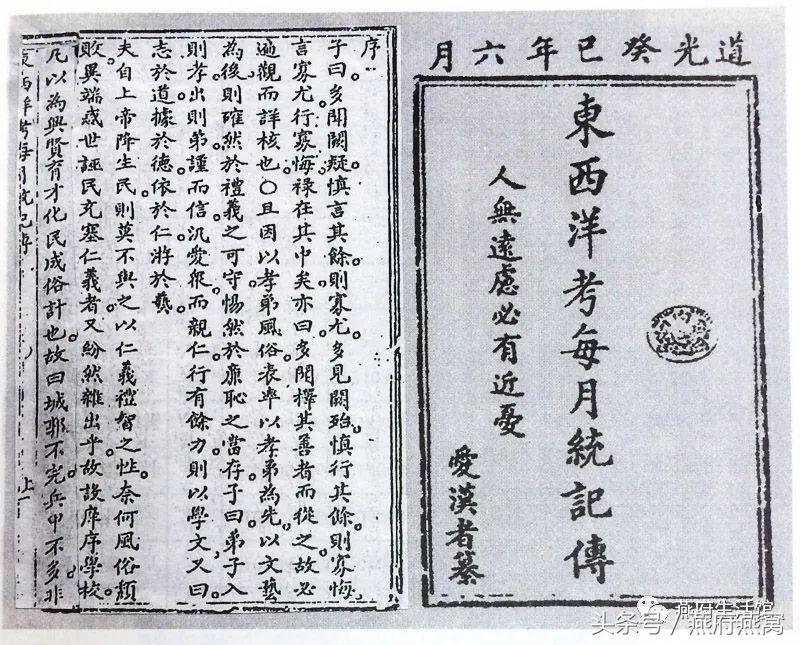 道光癸巳年六月
東西洋考每月統記傳
人無遠慮必有近憂
愛漢者纂
序
子曰多聞闕疑慎言其餘則寡尤多見闕殆慎行其餘則寡悔
言寡尤行寡悔祿在其中矣亦曰多聞擇其善者而從之故必
遍觀而詳核也○且因以孝弟風俗表率以孝弟為先以文藝
為後則確然於禮義之可守惕然於廉恥之當存子曰弟子入
則孝出則弟謹而信汎愛眾而親仁行有餘力則以學文又曰
志於道據於德依於仁游於藝
夫自上帝降生民則莫不與之以仁義禮智之性奈何風俗頹
敗異端惑世誣民充塞仁義者又紛然雜出乎故設庠序學校
凡以為興賢育才化民成俗計也故曰城郭不完兵甲不多非
東西洋考每月統記傳
燕府生活馆
头条号/燕府燕窝